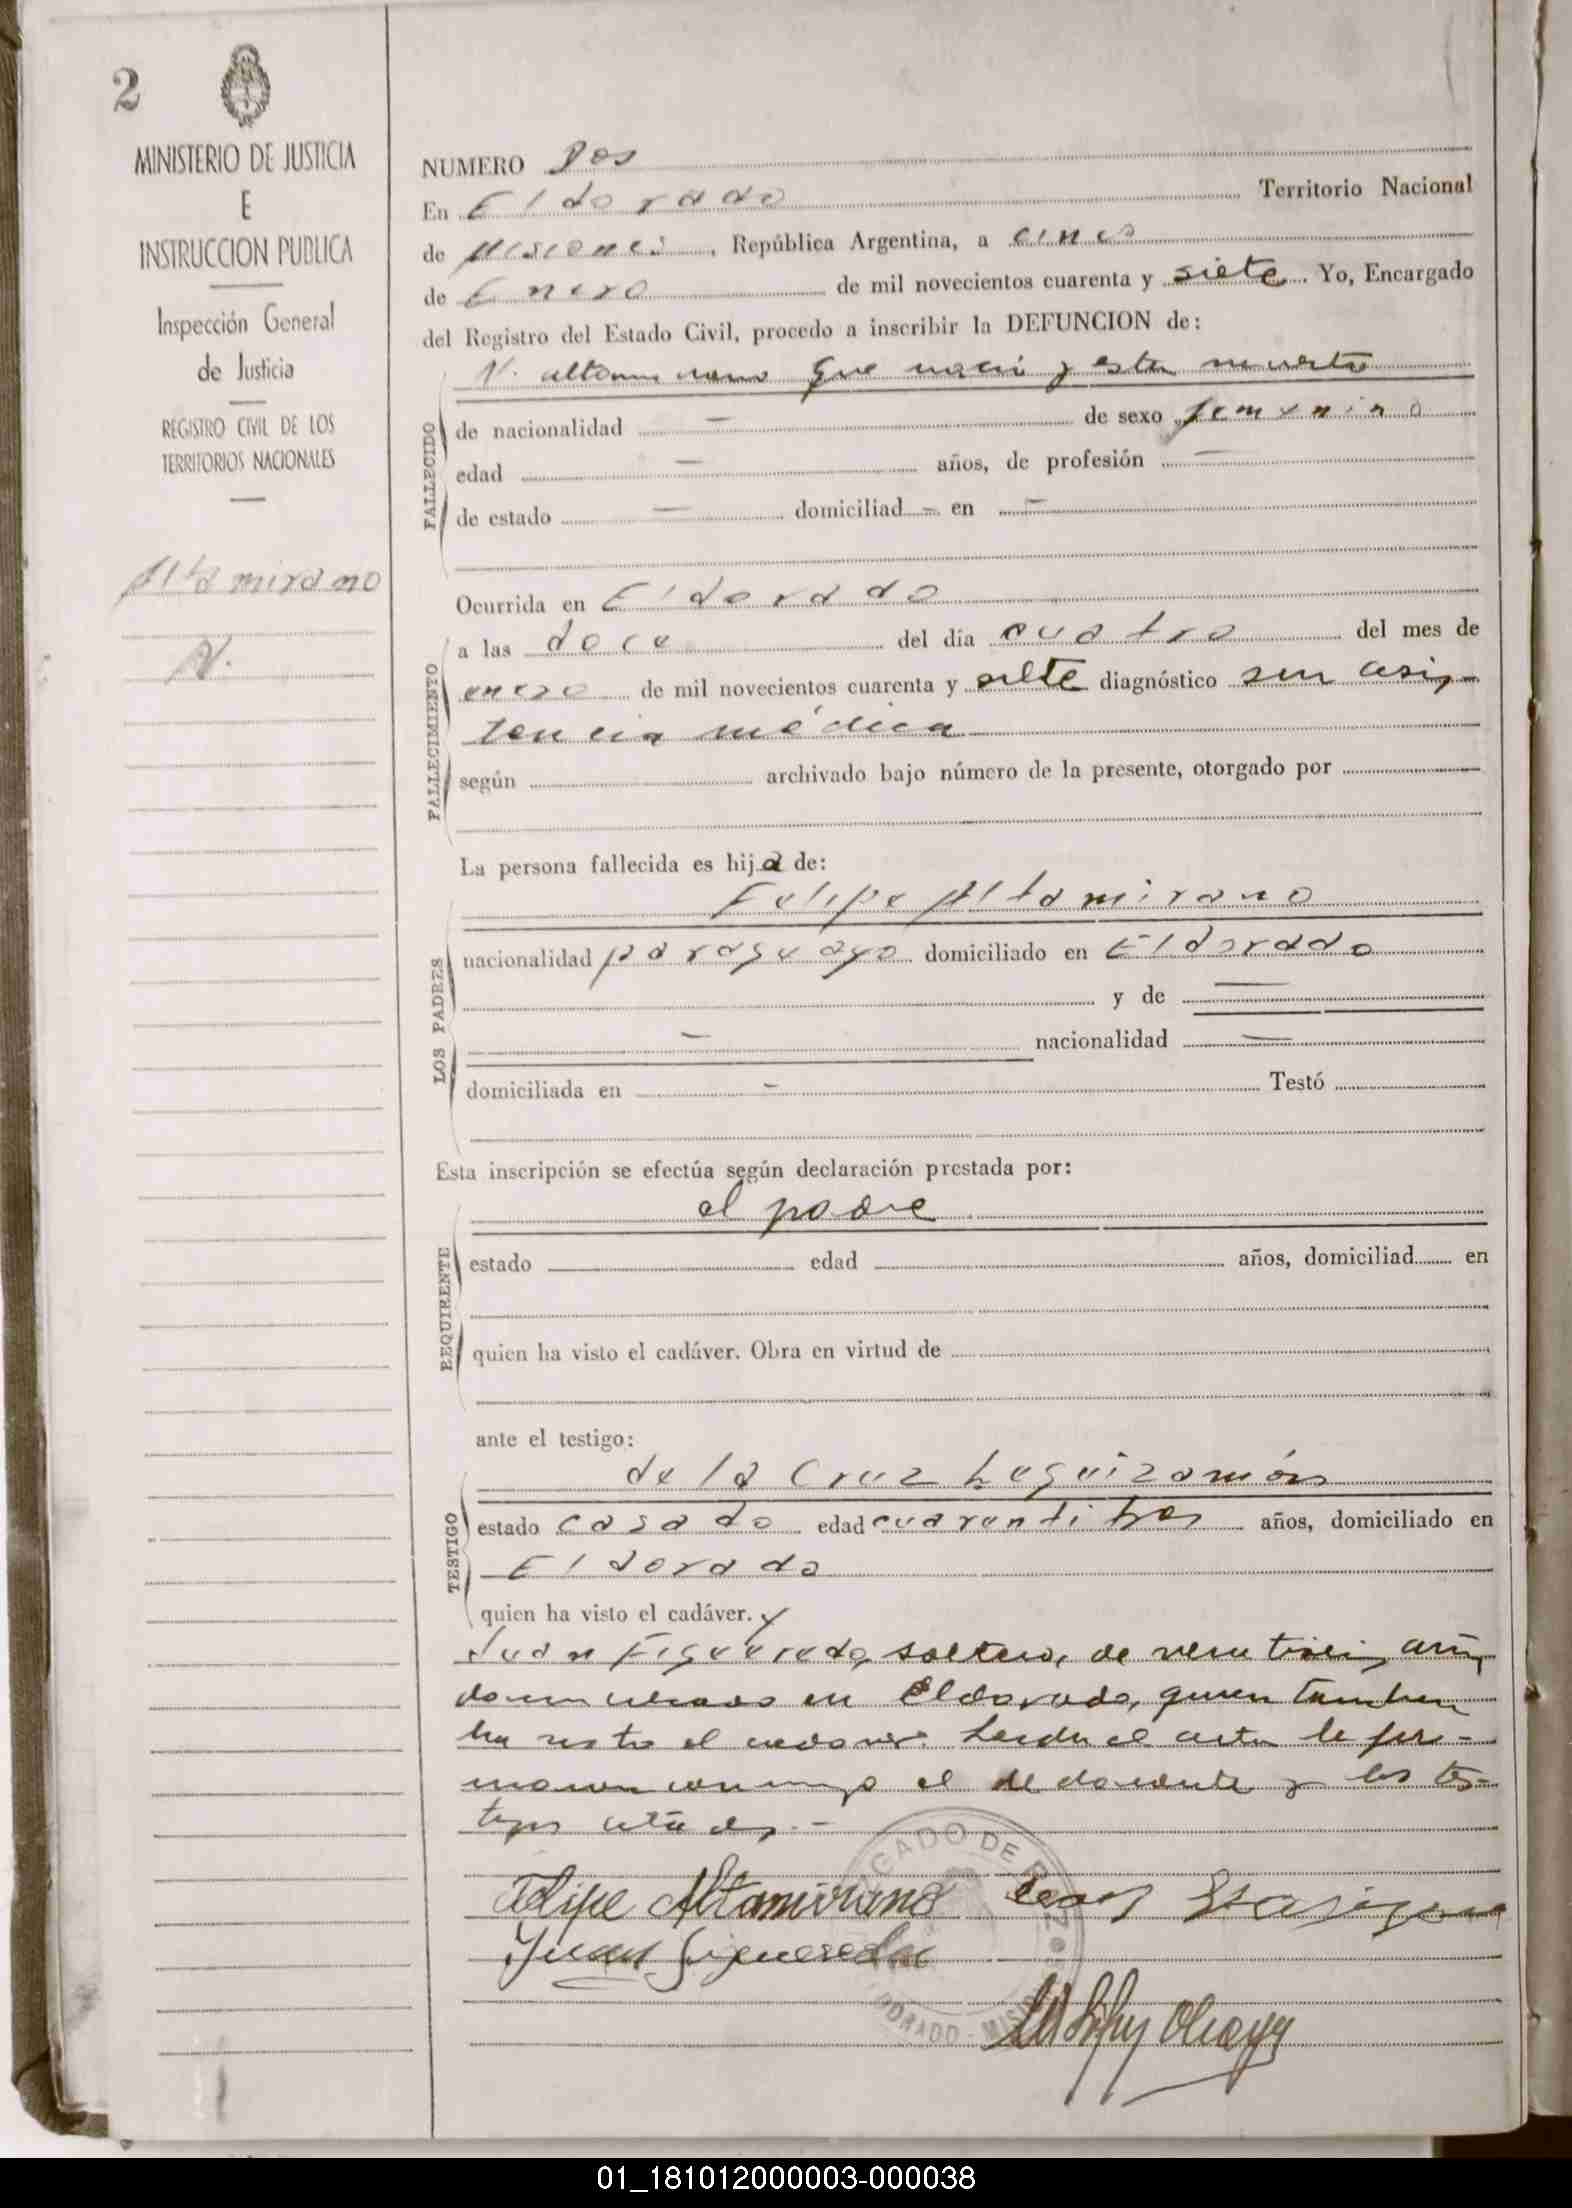 2
MINISTERIO DE JUSTICIA
E
INSTRUCCION PUBLICA
Inspección General
de Justicia
REGISTRO CIVIL DE LOS
TERRITORIOS NACIONALES
Altamirano
N.
NUMERO Dos
En Eldorado Territorio Nacional
de Misiones, República Argentina, a cinco
de Enero de mil novecientos cuarenta y siete. Yo, Encargado
del Registro del Estado Civil, procedo a inscribir la DEFUNCION de:
N. altamirano que nació y esta muerta
FALLECIDO
de nacionalidad — de sexo femenino
edad — años, de profesión —
de estado — domiciliad - en —
Ocurrida en Eldorado
FALLECIMIENTO
a las doce del día cuatro del mes de
enero de mil novecientos cuarenta y siete diagnóstico sin asis-
tencia médica
según archivado bajo número de la presente, otorgado por
La persona fallecida es hija de:
LOS PADRES
Felipe Altamirano
nacionalidad paraguayo domiciliado en Eldorado
y de —
— nacionalidad —
domiciliada en - Testó
Esta inscripción se efectúa según declaración prestada por:
REQUIRENTE
el padre
estado edad años, domiciliad en
quien ha visto el cadáver. Obra en virtud de
ante el testigo:
TESTIGO
de la Cruz Leguizamón
estado casado edad cuarentitres años, domiciliado en
Eldorado
quien ha visto el cadáver. y
Juan Figueredo, soltero, de años,
domiciliado en Eldorado, quien tambien
ha visto el cadaver. Leida el acta la fir-
maron conmigo el declarante y los tes-
tigos citados.-
Felipe Altamirano
Juan Figueredo
DE
ELDORADO - MISIONES
01_181012000003-000038